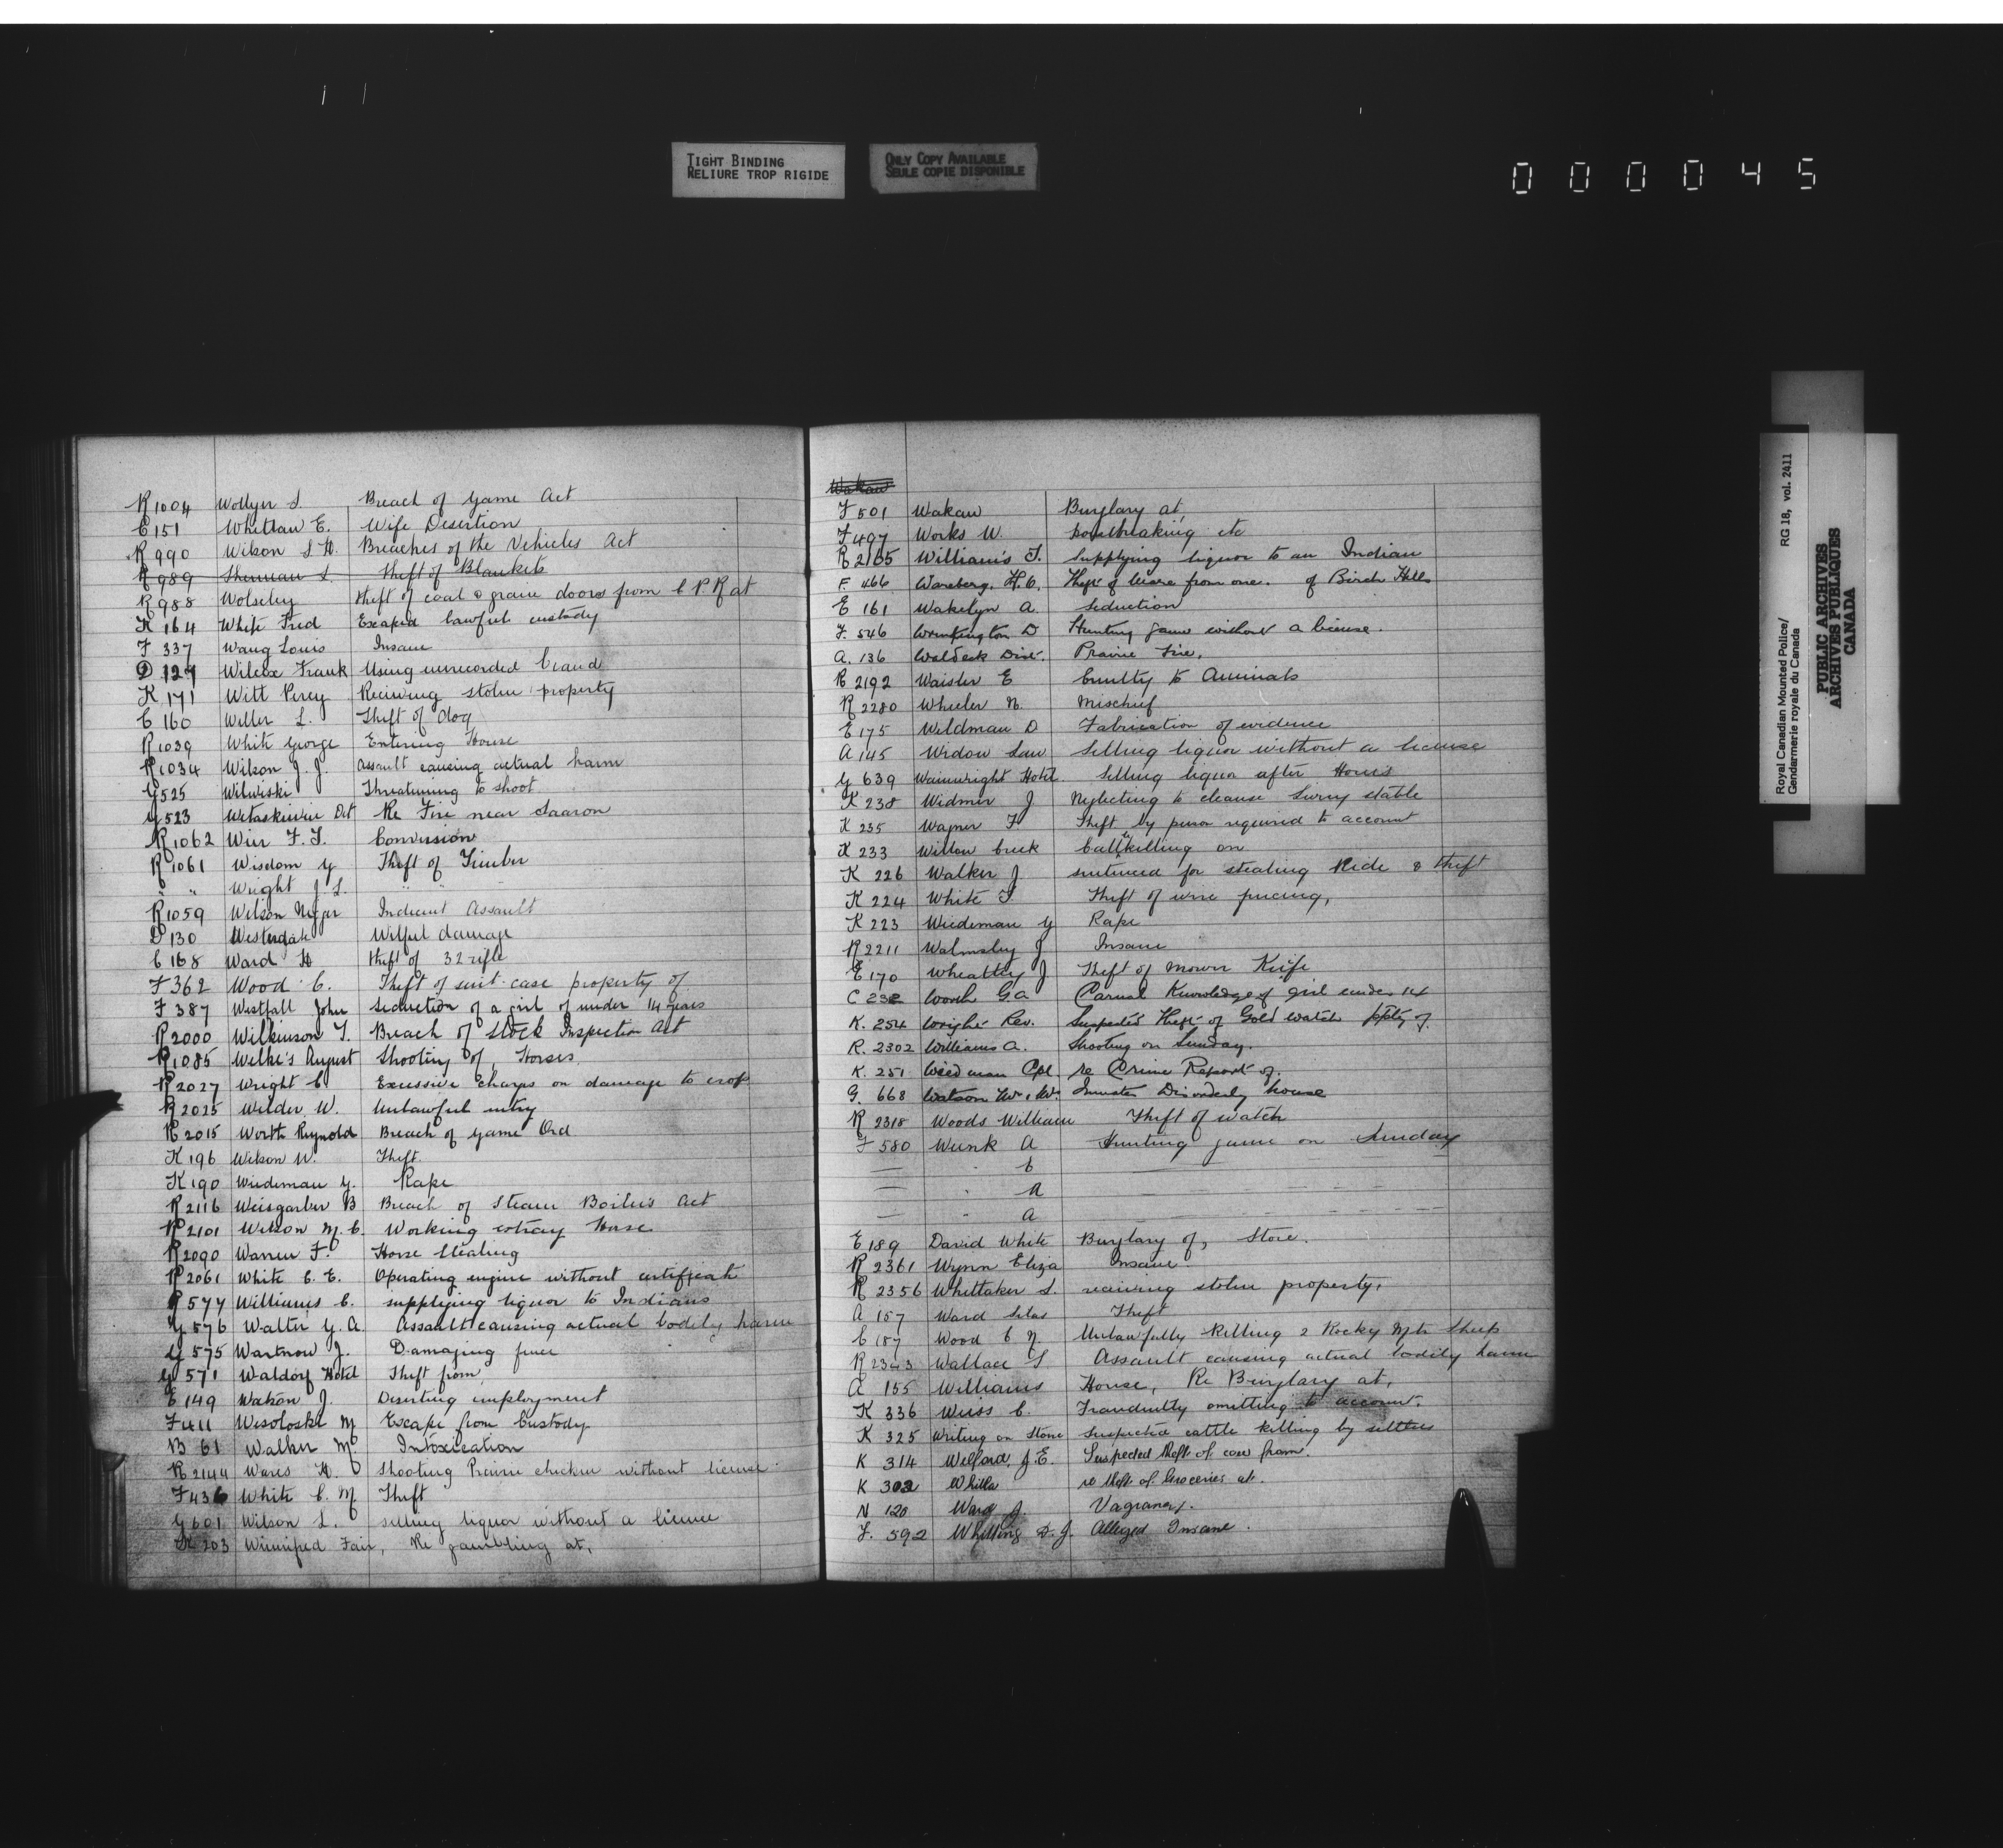 TIGHT BINDING
RELIURE TROP RIGIDE
ONLY COPY AVAILABLE
SEULE COPIE DISPONIBLE
000045
R 1004 Wollyer S. Breach of Game Act
C 151 Whitlaw E. Wife Desertion
R 990 Wilson S. H. Breaches of the Vehicles Act
R 989 Sherman S. Theft of Blankets
R 988 Wolseley theft of coal & grain doors from C P.R at
K 164 White Fred Escaped lawful custody
F 337 Wang Louis Insane
D 127 Wilcox Frank Using unrecorded brand
K 171 Witt Percy Receiving stolen property
C 160 Weller L. Theft of dog
R 1039 White George Entering House
R 1034 Wilson J. J. Assault causing actual harm
G 525 Wilwiski Threatening to shoot
G 523 Wetaskiwin Dist Re Fire near
R 1062 Wier F. T. Conversion
R 1061 Wisdom G Theft of Timber
" " Wright J. L. " "
R 1059 Wilson Indecent Assault
D 130 Westerdale Wilful damage
C 168 Ward H theft of 32 rifle
F 362 Wood C. Theft of suit-case property of
F 387 Westfall John Seduction of a girl of under 14 years
R 2000 Wilkinson T. Breach of Stock Inspection Act
R 1085 Wilkes August Shooting of, Horses
R 2027 Wright C Excessive Charges on damage to crop
R 2025 Wilder, W. Unlawful entry
R 2015 Worth Reynold Breach of Game Ord
K 196 Wilson W. Theft.
K 190 Wiedeman G. Rape
R 2116 Weisgarber B Breach of Steam Boilers Act
R 2101 Wilson M. C. Working estray Horse
R 2090 Warren F. Horse Stealing
R 2061 White C. E. Operating engine without certificate
R 577 Williams C. supplying liquor to Indians
G 576 Walter G. A. Assault causing actual bodily harm
G 575 Wartnow J. Damaging fence
G 571 Waldorf Hotel Theft from,
E 149 Watson J. Deserting employment
F 411 Wesoloski M Escape from Custody
B 61 Walker M. Intoxication
R 2144 Wares H. Shooting Prairie chicken without license
F 436 White C. M Theft
G 601 Wilson L. selling liquor without a license
K 203 Winnipeg Fair, Re gambling at,
Wakaw
F 501 Wakaw Burglary at,
F 497 Works W. housebreaking etc
R 2165 Williams T. supplying liquor to an Indian
F. 466 Wareberg, H. O. Theft of from one. of Birch Hills
E 161 Wakelyn A. Seduction
F. 546 D Hunting game without a license.
A. 136 Waldeck Dist. Prairie Fire.
R 2192 Waister E Cruelty to Animals
R 2280 Wheeler N. Mischief
E 175 Weldman D Fabrication of evidence
A 145 Widow Law Selling liquor without a license
G 639 Wainwright Hotel Selling liquor after Hours
K 238 Widmer J Neglecting to cleanse livery stable
K 235 Wagner F Theft by person required to account
K 233 Willow Creek Cattle killing on
K 226 Walker J sentenced for stealing Ride & theft
K 224 White T. Theft of wire fencing,
K 223 Wiedeman G Rape
R 2211 Walmsley J Insane
E 170 Wheatley J Theft of mower Knife
C 232 Worth G A Carnal Knowledge of girl under 14
K. 254 Wright Rev. Suspected theft of Gold watch ppty of
R. 2302 Williams A. Shooting on Sunday.
K. 251 Weedman Cpl. re Crime Report of.
G. 668 Watson Mr. & Mrs. Inmates Disorderly house
R 2318 Woods William Theft of watch
F 580 Wunk A Hunting game on Sunday
— " C —
— " A —
— " A —
E 189 David White Burglary of, Store.
R 2361 Wynn Eliza Insane
R 2356 Whittaker S. receiving stolen property.
A 157 Ward Silas Theft
C 187 Wood C N. Unlawfully Killing 2 Rocky Mtn Sheep
R 2343 Wallace S Assault causing actual bodily harm
A 155 Williams House, Re Burglary at,
K 336 Weiss C. Fraudently omitting to account.
K 325 Writing on Stone Suspected cattle killing by settlers
K 314 Welford, J. E. Suspected theft of cow from.
K 302 Whitla re theft of Groceries at.
N 120 Ward J. Vagrancy.
F. 592 Whitting D. J. Alleged Insane.
Royal Canadian Mounted Police/ RG 18, vol. 2411
Gendarmerie royale du Canada
PUBLIC ARCHIVES
ARCHIVES PUBLIQUES
CANADA